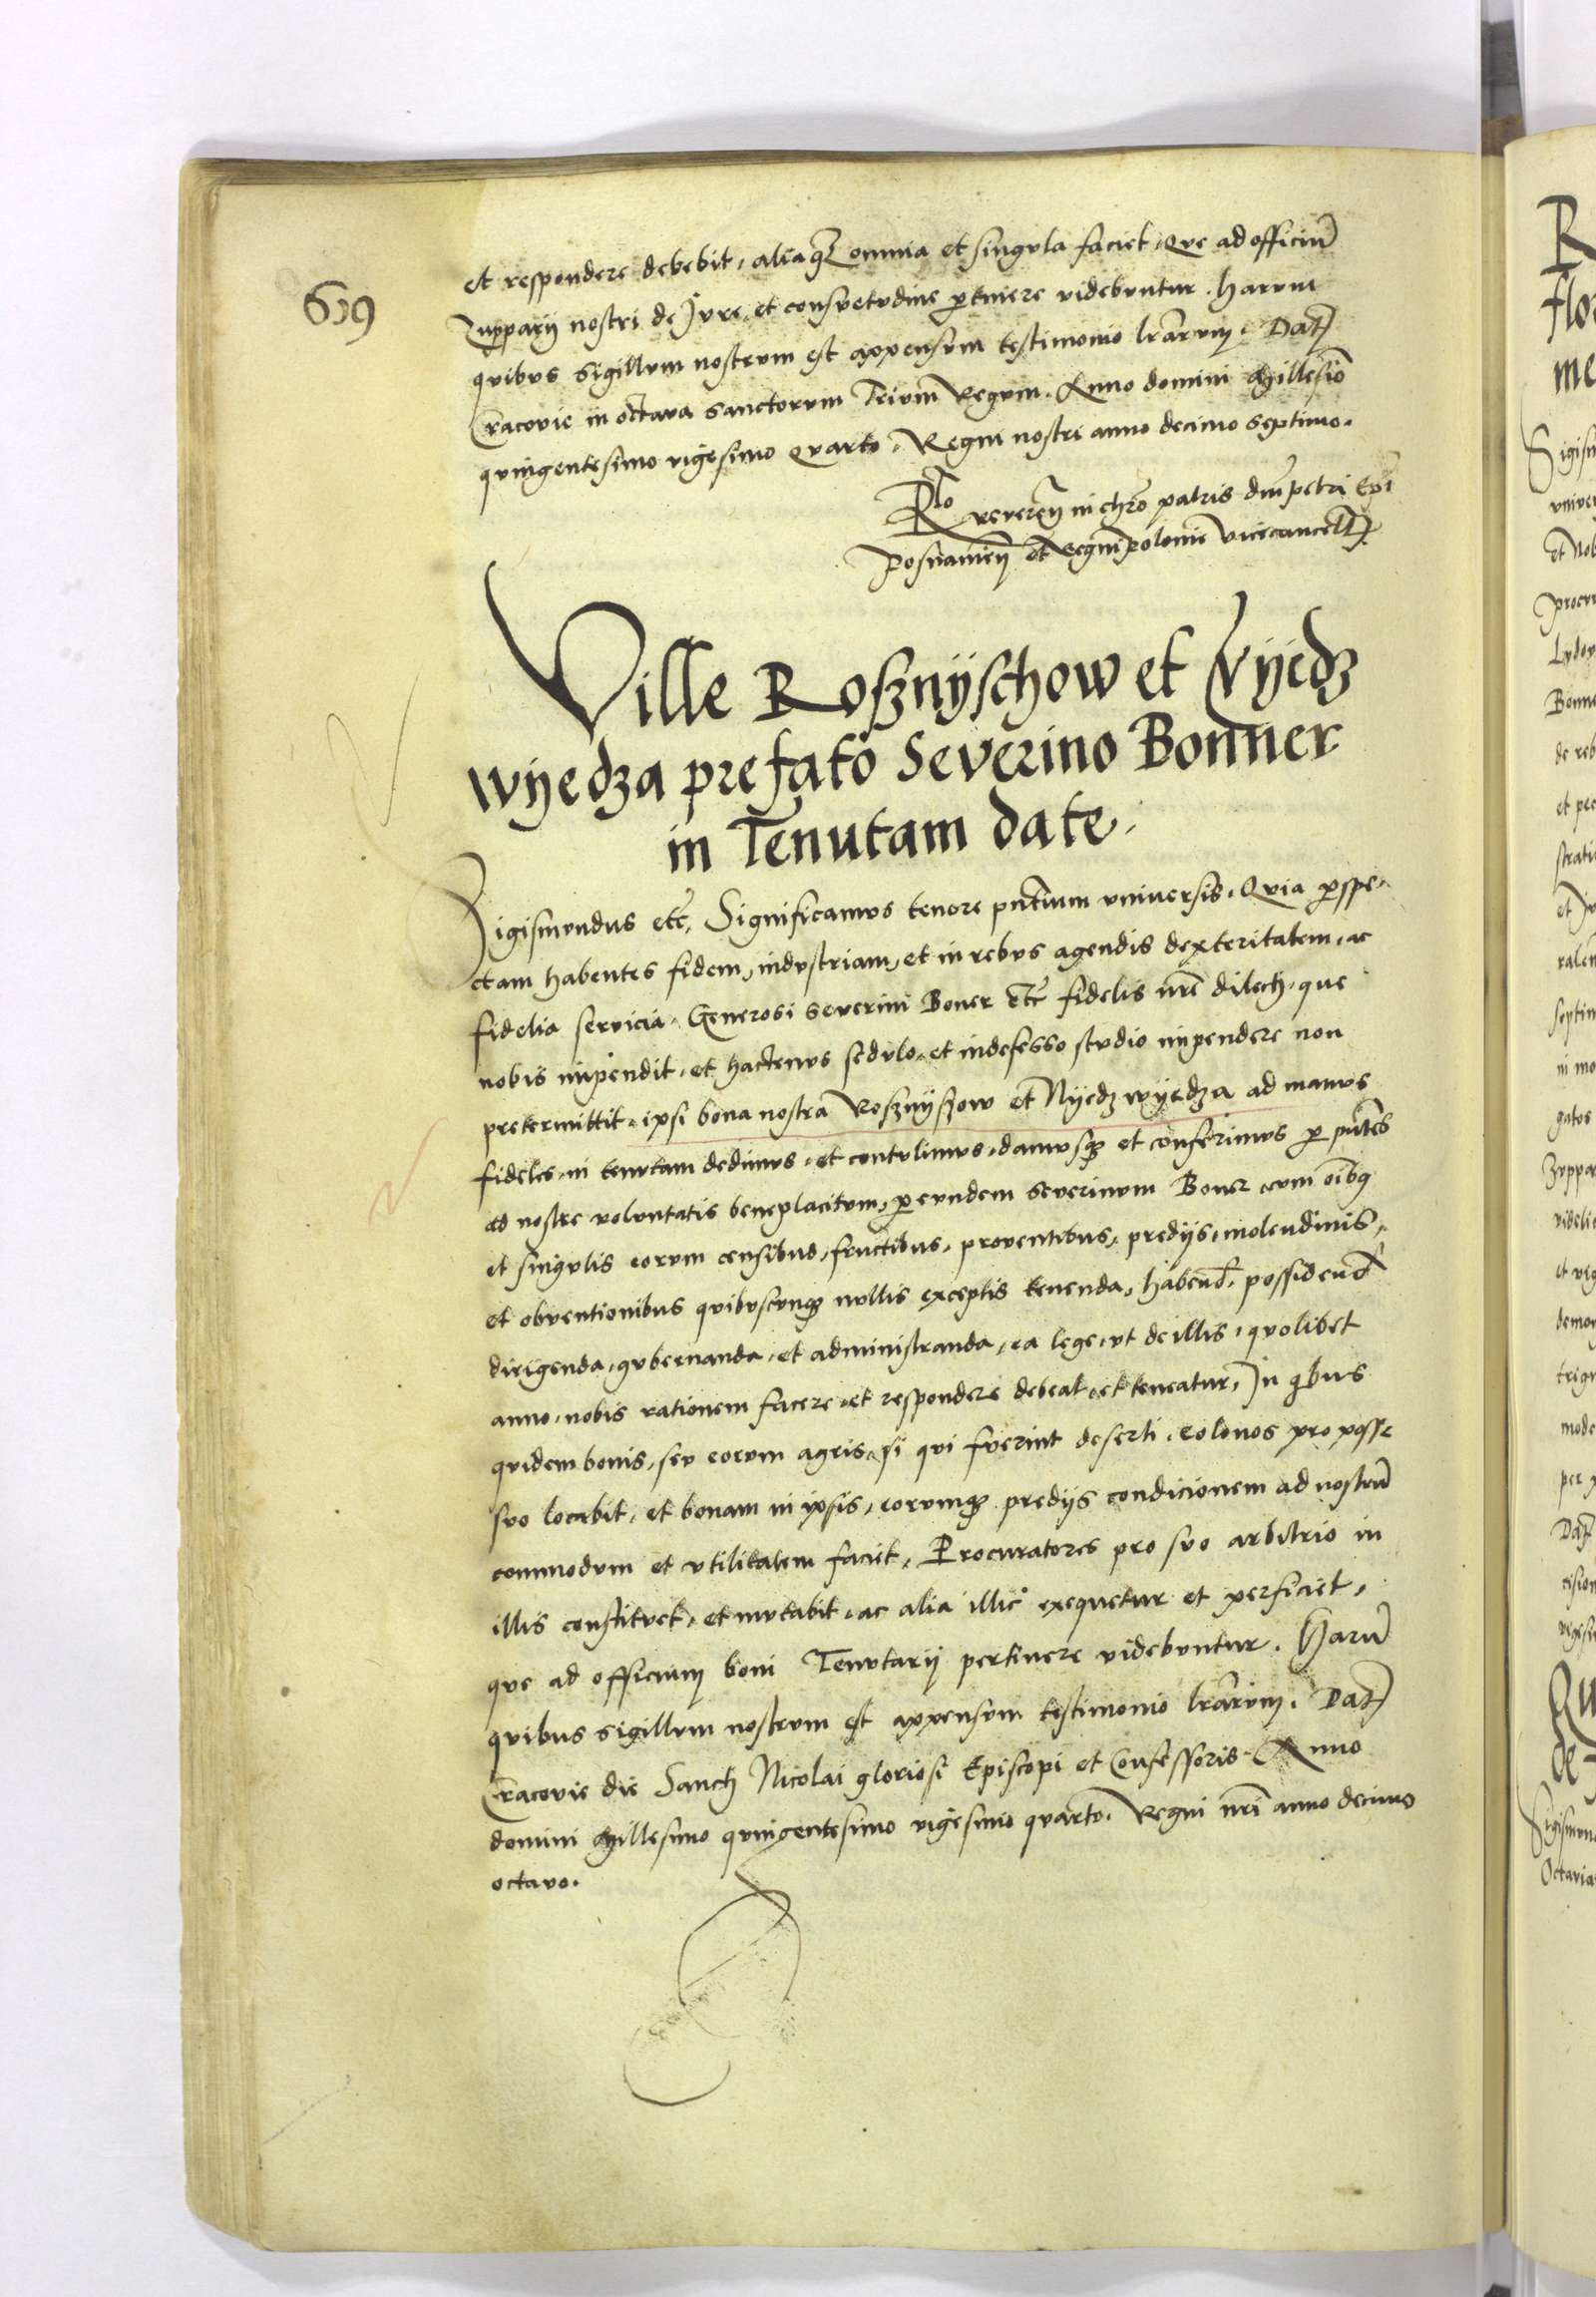 639
et respondere debebit, aliaq₃ omnia et singvla faciet, Qve ad officiū
Zupparij nostri de Jvre, et consvetvdine ꝑtinere videbvntur. Harvm
qvibvs Sigillvm nostrvm est appensvm testimonio lrārvm. Dat
Cracovie in octava sanctorvm Trivm Regvm. Anno domini Millesiō
qvingentesimo vigesimo Qvarto, Regni nostri anno decimo septimo.
Rlo reveren in chrō patris dnī petri Epī
Posnanien et Regni polonie vicecancell
Ville Rosznÿschow et Nÿedz
wÿedza prefato Severino Bonner
in Tenutam date.
Sigismvndus etc̄, Significamvs tenore pn̄tium vniversis. Qvia ꝑspe-
ctam habentes fidem, indvstriam, et in rebvs agendis dexteritatem, ac
fidelia servicia, Generosi severini Boner etc̄ fidelis nrī dilecti, que
nobis impendit, et hactenvs sedvlo, et indefesso stvdio impendere non
pretermittit, ipsi bona nostra Rosznÿszow et Nÿedzwÿedza ad manvs
fideles, in tenvtam dedimvs, et contvlimvs, damvsq₃ et conferimvs ꝑ pn̄tes
ad nostre volvntatis beneplacitvm, ꝑ evndem severinvm Boner cvm oībq
et singvlis eorvm censibus, fructibus, proventibus, predijs, molendinis,
et obventionibus qvibvscvnq₃ nvllis exceptis tenenda, habend, possidend
dirigenda, gvbernanda, et administranda, ea lege, vt de illis, qvolibet
anno, nobis rationem facere, et respondere debeat, et teneatur, In qibus
qvidem bonis, sev eorvm agris, si qvi fverint deserti, colonos pro posse
svo locabit, et bonam in ipsis, eorvmq₃ predijs condicionem ad nostrū
commodvm et vtilitatem faciet, Procuratores pro svo arbitrio in
illis constitvet, et mvtabit, ac alia illic exequetur et perficiet,
qve ad officium boni Tenvtarij pertinere videbvntur. Harū
qvibus sigillvm nostrvm est appensvm testimonio lrārvm. Dat
Cracovie die Sancti Nicolai gloriosi Episcopi et Confessoris. Anno
domini Millesimo qvingentesimo vigesimo qvarto. Regni nrī anno decimo
octavo.